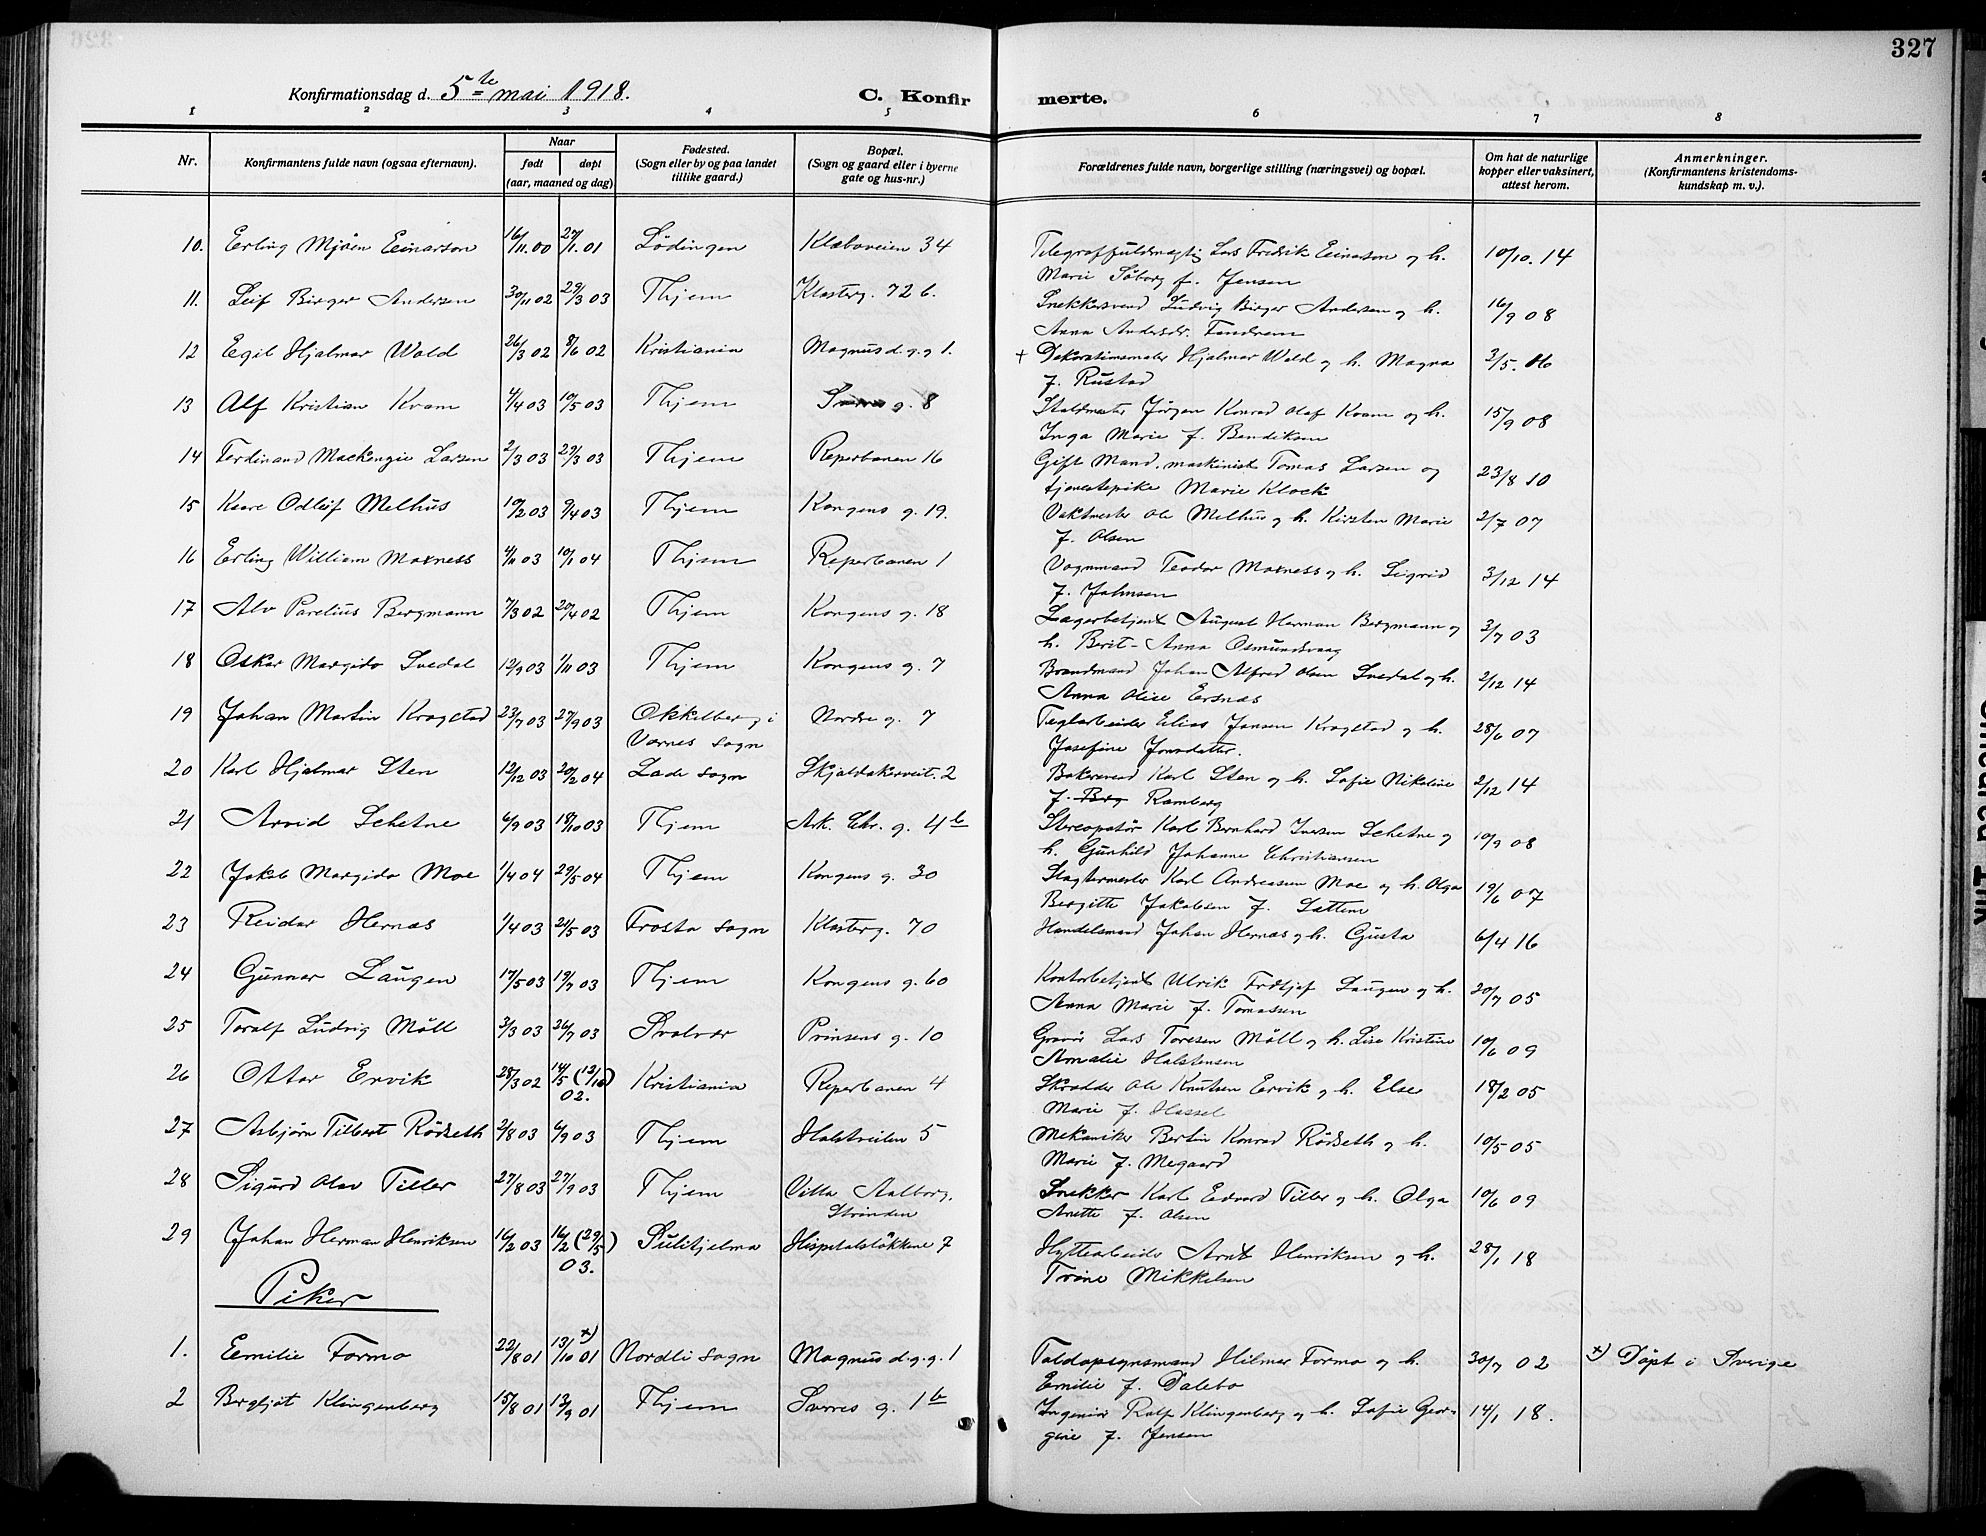 327
Konfirmationsdag d. 5te mai 1918.
C. Konfirmerte.
1 2 3 4 5 6 7 8
Nr.
Konfirmantens fulde navn (ogsaa efternavn).
Naar
født døpt
(aar, maaned og dag)
Fødested.
(Sogn eller by og paa landet
tillike gaard.)
Bopæl.
(Sogn og gaard eller i byerne
gate og hus-nr.)
Forældrenes fulde navn, borgerlige stilling (næringsvei) og bopæl.
Om hat de naturlige
kopper eller vaksinert,
attest herom.
Anmerkninger.
(Konfirmantens kristendoms-
kundskap m. v.).
10. Erling Mjøen Einarson 16/11.00 27/1.01 Lødingen Klæboveien 34 Telegraffuldmægtig Lars Fredrik Einarson og h. 10/10.14
Marie Søborg f. Jensen
11. Leif Birger Andersen 30/11 02 29/3 03 Thjem Klosterg. 72 b. Snekkersvend Ludvig Birger Andersen og h. 16/9 08
Anna Andersdr.
12 Egil Hjalmar Wold 26/3 02 8/6 02 Kristiania Magnus d. g. g 1. + Dekorationsmaler Hjalmar Wold og h. Magna 3/5.06
f. Rustad
13 Alf Kristian Kvam 4/4 03 10/5 03 Thjem g. 8 Jørgen Konrad Olaf Kvam og h. 15/9 08
Inga Marie f. Bendiksen
14 Ferdinand Mackenzie Larsen 2/3 03 29/3 03 Thjem Reperbanen 16 Gift Mand, maskinist Tomas Larsen og 23/8 10
tjenestepike Marie Klock
15 Kaare Odleif Melhus 10/2 03 9/4 03 Thjem Kongens g. 19. Vaktmester Ole Melhus og h. Kirsten Marie 2/7 07
f. Olsen
16 Erling William Moxness 4/11 03 10/1 04 Thjem Reperbanen 1 Vognmand Teodor Moxness og h. Sigrid 3/12 14
f. Johnsen
17 Alv Parelius Bergmann 7/3 02 20/4 02 Thjem Kongens g. 18 Lagerbetjent August Herman Bergmann og 3/7 03
h. Berit-Anna Osmundsvaag
18 Oskar Margido Svedal 12/9 03 1/11 03 Thjem Kongens g. 7 Brandmand Johan Alfred Olsen Svedal og h. 2/12 14
Anna Olise Ersnæs
19 Johan Martin Kragstad 23/7 03 27/9 03 Okkelberg i Nordre g. 7 Teglarbeider Elias Jansen Kragstad og h. 28/6 07
Værnes sogn Josefine Jonsdatter.
20 Karl Hjalmar Sten 12/12 03 20/2 04 Lade sogn Skjeldakerveit. 2 Bakersvend Karl Sten og h. Sofie Nikoline 2/12 14
f. Berg Ramberg
21 Arvid Schetne 6/9 03 18/10 03 Thjem Ark. Chr. g. 4b Stereopatør Karl Bernhard Iversen Schetne og 10/9 08
h. Gunhild Johanne Christiansen
22 Jakob Margido Moe 1/4 04 29/5 04 Thjem Kongens g. 30 Slagtermester Karl Andreassen Moe og h. Olga 19/6 07
Bergitte Jakobsen f. Sattem
23 Reidar Hernæs 1/4 03 21/5 03 Frosta sogn Klosterg. 70 Handelsmand Johan Hernæs og h. Gusta 6/4 16
24 Gunnar Laugen 17/5 03 19/7 03 Thjem Kongens g. 60 Kontorbetjent Ulrik Fridtjof Laugen og h. 20/7 05
Anna Marie f. Tomassen
25 Toralf Ludvig Møll 3/3 03 26/7 03 Svolvær Prinsens g. 10 Gravør Lars Toresen Møll og h. Lise Kristine 10/6 09
Amalie Halstensen
26 Ottar Ervik 28/3 02 14/5 (12/10) Kristiania Reperbanen 4 Skrædder Ole Knutsen Ervik og h. Else 18/2 05
02. Marie f. Hassel
27 Asbjørn Tilbert Rødseth 2/8 03 6/9 03 Thjem Halsetveien 5 Mekaniker Bertin Konrad Rødseth og h. 10/5 05
Marie f. Megaard
28 Sigurd Olav Tiller 27/8 03 27/9 03 Thjem Villa Aalborg. Snekker Karl Edvard Tiller og h. Olga 10/6 09
Strinden Anette f. Olsen
29 Johan Herman Henriksen 16/2 03 16/2 (29/5) Sulitjelma Hospitalsløkkene 7 Hyttearbeider Arnt Henriksen og h. 28/1 18
03. Trine Mikkelsen
Piker
1. Emilie Formo 22/8 01 13/10 01 x) Nordli sogn Magnus d. g. g. 1 Toldopsynsmand Hilmar Formo og h. 30/7 02 x) Døpt i Sverige
Emilie f. Dalebo
2 Bergljot Klingenberg 15/8 01 13/9 01 Thjem Sverres g. 1b Ingeniør Rolf Klingenberg og h. Sofie Geor- 14/1 18.
gine f. Jensen